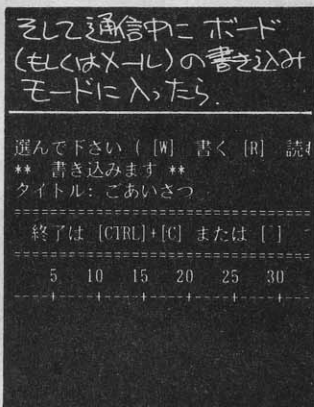 そして通信中に ボード
(もしくはメール)の書き込み
モードに入ったら.
選んで下さい ( [W] 書く [R] 読
** 書き込みます **
タイトル: ごあいさつ
終了は [CTRL]+[C] または [^]
5 10 15 20 25 30